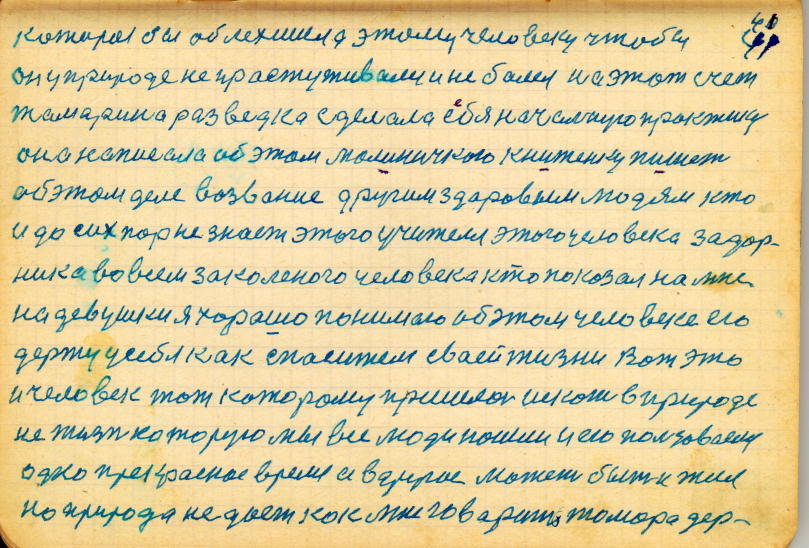 41
которое бы облехшила этому человеку чтобы
он у природе не простуживалсу и не болел на этот счет
тамара на разведка сделала себя начальную практику
она написала об этом малиничкою книженку пишет
об этом деле возвание другим здаровым людям кто
и до сих пор не знает этого учителя этого человека задор-
ника во всем заколеного человека кто показал на мне
на девушки я хорашо понимаю об этом человеке его
держу у себя как спасителем сваей жизни Вот это
и человек тот которому пришлос искат в природе
не тот которую мы все люди пошли и ею ползоваемся
одно прекрасное время а второе может быть и жил
но природа не дает как мне говарит томора дер-